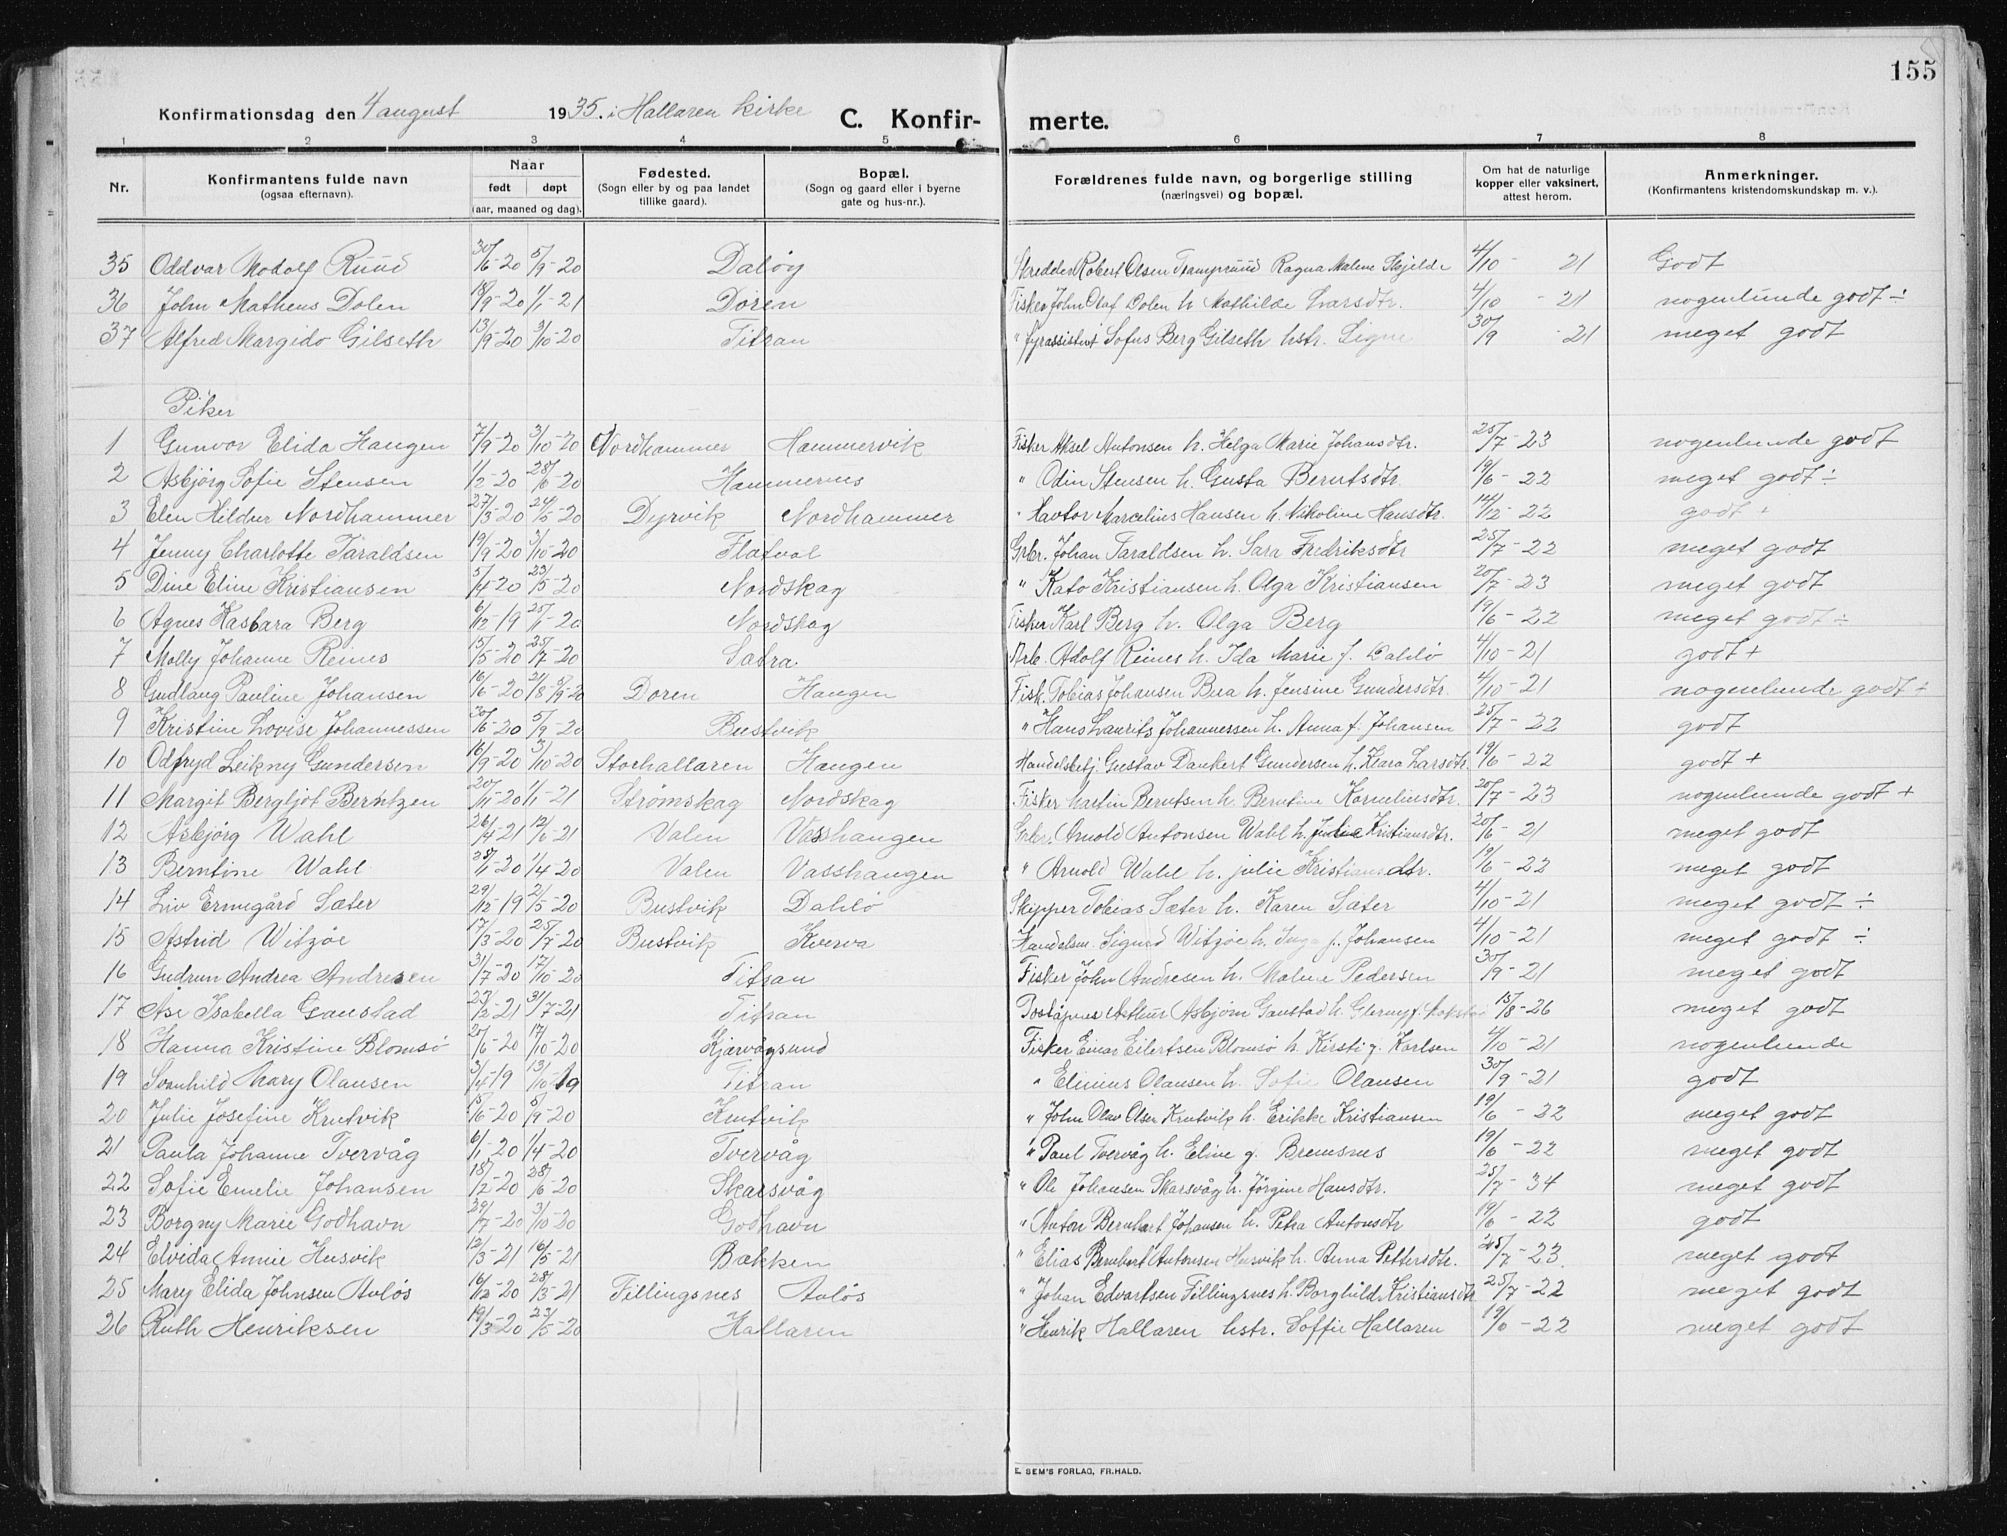 155
Konfirmationsdag den 4 august 1935. i Hallaren kirke C. Konfir- merte.
1 2 3 4 5 6 7 8
Nr. Konfirmantens fulde navn (ogsaa efternavn). Naar født døpt (aar, maaned og dag). Fødested. (Sogn eller by og paa landet tillike gaard). Bopæl. (Sogn og gaard eller i byerne gate og hus-nr.). Forældrenes fulde navn, og borgerlige stilling (næringsvei) og bopæl. Om hat de naturlige kopper eller vaksinert, attest herom. Anmerkninger. (Konfirmantens kristendomskundskap m. v.).
35 Oddvar Modolf Ruud 30/6-20 5/9-20 Daløy Robert Olsen Ragna Malene Skjelde 4/10 - 21 Godt
36 John Matheus Dolen 18/9-20 1/1-21 Doren Fisker John Olaf Dolen h. Mathilde Larsdtr. 4/10 - 21 nogenlunde godt ÷
37 Alfred Margido Gilseth 13/9-20 3/10-20 Titran " Fyrassistent Sofus Berg Gilseth hstr. Signe 30/9 - 21 meget godt
Piker
1 Gunvor Elida Haugen 7/9-20 3/10-20 Nordhammer Hammervik Fisker Aksel Antonsen h. Helga Marie Johansdtr. 25/7-23 nogenlunde godt
2 Asbjørg Sofie Stensen 1/2-20 28/6-20 Hammernes " Odin Stensen h. Gusta Berntsdtr. 19/6-22 meget godt ÷
3 Elen Hildur Nordhammer 27/3-20 24/5-20 Dyrvik Nordhammer " Havtor Marcelius Hansen h. Nikoline Hansdtr. 14/12-22 godt +
4 Jenny Charlotte Taraldsen 19/9-20 3/10-20 Flatval Grbr. Johan Taraldsen h. Sara Fredriksdtr 25/7-22 meget godt
5 Dine Eline Kristiansen 5/4-20 23/5-20 Nordskag " Kato Kristiansen h. Olga Kristiansen 20/7-23 meget godt
6 Agnes Hasbara Berg 6/12-19 25/1-20 Nordskag Fisker Karl Berg h. Olga Berg 19/6-22 meget godt ÷
7 Molly Johanne Reines 15/5-20 25/7-20 Satra Arb. Adolf Reines h. Ida Marie f. Dahlø 4/10-21 godt +
8 Gudlaug Pauline Johansen 16/6-20 21/8 5/9-20 Doren Haugen Fisk. Tobias Johansen Bua h. Jensine Gundersdtr. 4/10-21 nogenlunde godt ÷
9 Kristine Lovise Johannessen 30/6-20 5/9-20 Bustvik " Hans Laurits Johannessen h. Anna f. Johansen 25/7-22 godt
10 Odfryd Leikny Gundersen 16/9-20 3/10-20 Storhallaren Haugen Handelsbetj. Gustav Dankert Gundersen h. Klara Larsdtr. 19/6-22 godt +
11 Margit Bergljot Berntzen 20/11-20 1/1-21 Strømskag Nordskag Fisker Martin Berntsen h. Berntine Korneliusdtr. 20/7-23 nogenlunde godt +
12 Asbjørg Wahl 26/4-21 12/6-21 Valen Vasshaugen Grbr. Arnold Antonsen Wahl h. Julie Kristiansdtr. 20/6-21 meget godt
13 Berntine Wahl 25/1-20 1/4-20 Valen Vasshaugen " Arnold Wahl h. Julie Kristiansdtr. 19/6-22 meget godt
14 Liv Ermegård Sæter 29/12-19 2/5-20 Bustvik Dahlø Skipper Tobias Sæter h. Karen Sæter 4/10-21 meget godt ÷
15 Astrid Witzøe 17/3-20 25/7-20 Bustvik Kverva Handelsm. Sigurd Witzøe h. Inga f. Johansen 4/10-21 meget godt ÷
16 Gudrun Andrea Andresen 3/7-20 17/10-20 Titran Fisker John Andresen h. Malene Pedersen 30/9-21 meget godt
17 Åse Isabella Gaustad 23/2-21 31/7-21 Titran Poståpner Arthur Asbjørn Gaustad h. 15/8-26 meget godt
18 Hanna Kristine Blomsø 20/6-20 17/10-20 Kjærvågsund Fisker Einar Eilertsen Blomsø h. Kirsti g. Karlsen 4/10-21 nogenlunde
19 Svanhild Mary Olausen 3/4-19 13/10-19 Titran " Elinius Olausen h. Sofie Olausen 30/9-21 godt
20 Julie Josefine Knutvik 15/6-20 5/9-20 Knutvik " John Olav Olsen Knutvik h. Erikke Kristiansen 19/6-22 meget godt
21 Paula Johanne Tvervåg 6/1-20 1/4-20 Tvervåg " Paul Tvervåg h. Eline g. Bremsnes 19/6-22 meget godt
22 Sofie Emelie Johansen 18/2-20 28/6-20 Skarsvåg " Ole Johansen Skarsvåg h. Jørgine Hansdtr. 25/7-34 meget godt
23 Borgny Marie Godhavn 29/7-20 3/10-20 Godhavn " Anton Bernhart Johansen h. Petra Antonsdtr 19/6-22 godt
24 Elvida Annie Husvik 12/3-21 16/5-21 Bakken " Elias Bernhart Antonsen Husvik h. Anna Pettersdtr. 25/7-23. meget godt
25 Mary Elida Johnsen Auløs 16/12-20 28/3-21 Fillingsnes Auløs " Johan Edvartsen Fillingsnes h. Borghild Kristiansdtr 25/7-22 meget godt
26 Ruth Henriksen 19/3-20 23/5-20 Hallaren " Henrik Hallaren hstr. Soffie Hallaren 19/6-22 meget godt
E. SEM'S FORLAG, FR.HALD.